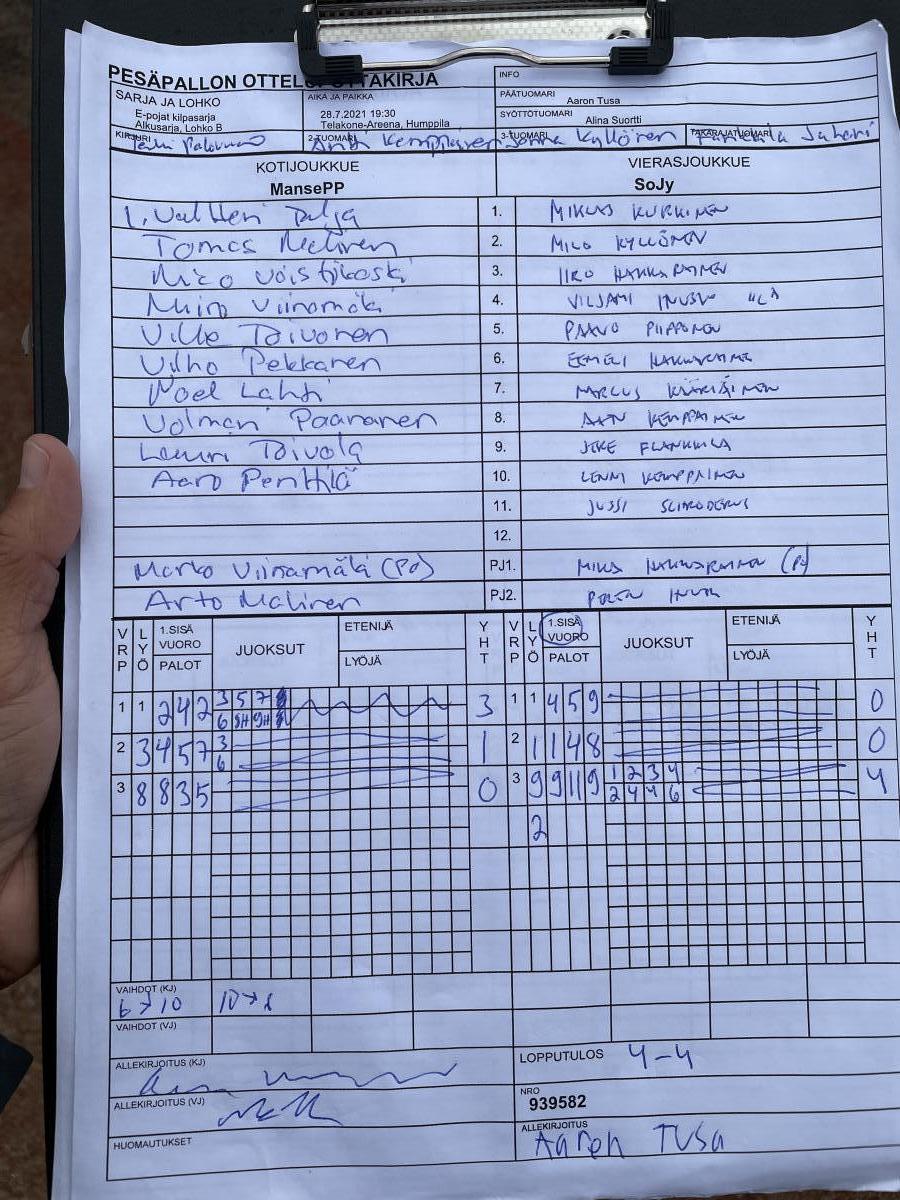 PESÄPALLON OTTELUPÖYTÄKIRJA
SARJA JA LOHKO
E-pojat kilpasarja
Alkusarja, Lohko B
AIKA JA PAIKKA
28.7.2021 19:30
Telakone-Areena, Humppila
INFO
PÄÄTUOMARI
Aaron Tusa
SYÖTTÖTUOMARI
Alina Suortti
KIRJURI
2-TUOMARI
3-TUOMARI
Jonna Kyllönen
TAKARAJATUOMARI
KOTIJOUKKUE
MansePP
VIERASJOUKKUE
SoJy
1. Valtteri Talja 1. MIKLAS KURKINEN
Tomas Malinen 2. MILO KYLLÖNEN
Nico Voistikoski 3. IIRO HAKKARAINEN
Miiro Viinamäki 4. VILJAMI
Ville Toivonen 5. PAAVO PIIPPONEN
Vilho Pekkarinen 6. EEMELI HAKKARAINEN
Noel Lahti 7. MARCUS KÄÄRIÄINEN
Volmari Paananen 8. KEMPPAINEN
Lauri Toivola 9. JERE FLANKKILA
Aaro Penttilä 10. LENNI KEMPPAINEN
11. JUSSI
12.
Marko Viinamäki (PJ) PJ1. MIKA HAKKARAINEN (PJ)
Arto Malinen PJ2.
VRP LYÖ 1.SISÄ VUORO PALOT JUOKSUT ETENIJÄ LYÖJÄ YHT VRP LYÖ 1.SISÄ VUORO PALOT JUOKSUT ETENIJÄ LYÖJÄ YHT
1 1 2 4 2 3 5 7 3 1 1 4 5 9 0
6 5H 9H
2 3 4 5 7 3 1 2 1 1 4 8 0
6
3 8 8 3 5 0 3 9 9 1 9 1 2 3 4 4
2 4 4 6
2
VAIHDOT (KJ)
6→10 10→
VAIHDOT (VJ)
ALLEKIRJOITUS (KJ)
LOPPUTULOS 4-4
ALLEKIRJOITUS (VJ)
NRO
939582
HUOMAUTUKSET
ALLEKIRJOITUS
Aaron TUSA